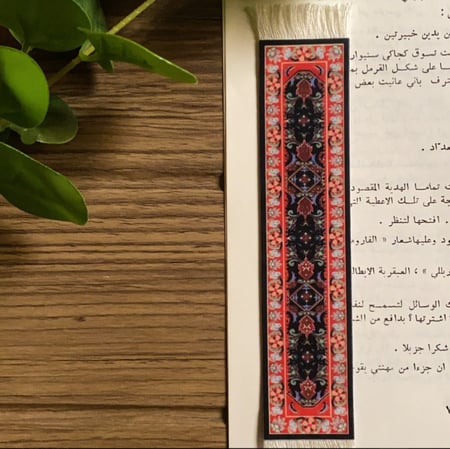 :
ن يدين خبيرتين .
ت تسوق كجاكي سنيوار
ا على شكل القرمل بم
ترف باني عاتبت بعض
داد .
ت تماما الهدية المقصود
جة على تلك الاعطية التي
. افتحها لتنظر .
ود وعليهاشعار « الفارو
ريللي » ، العبقرية الايطال
ك الوسائل لتسمح لنف
اشترتها ؟ بدافع من الش
شكرا جزيلا .
ان جزءا من مهنتي يقو